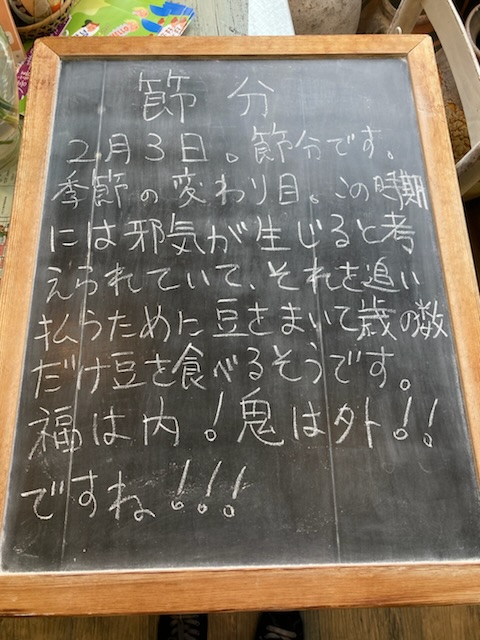 節分
2月3日。節分です。
季節の変わり目。この時期
には邪気が生じると考
えられていて、それを追い
払うために豆をまいて歳の数
だけ豆を食べるそうです。
福は内！鬼は外！！
ですね！！！